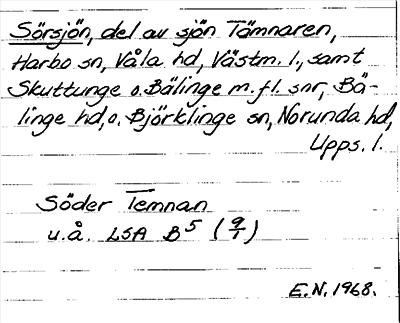 Sörsjön, del av sjön Tämnaren,
Harbo sn, Våla hd, Västm. l., samt
Skuttunge o. Bälinge m. fl. snr, Bä-
linge hd, o. Björklinge sn, Norunda hd,
Upps. l.
Söder Temnan
u.å. LSA B⁵ (9/1)
E.N. 1968.